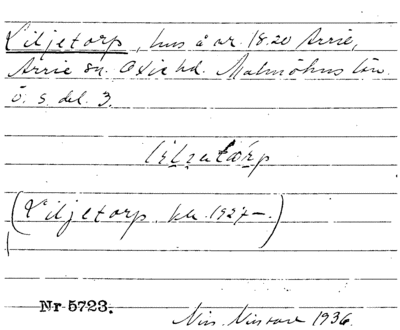 Liljetorp, hus å nr. 18.20 Arrie,
Arrie sn. Oxie hd. Malmöhus län
ö. s. del. 3.
(Liljetorp. kk. 1927—.)
Nr 5723.
1936.